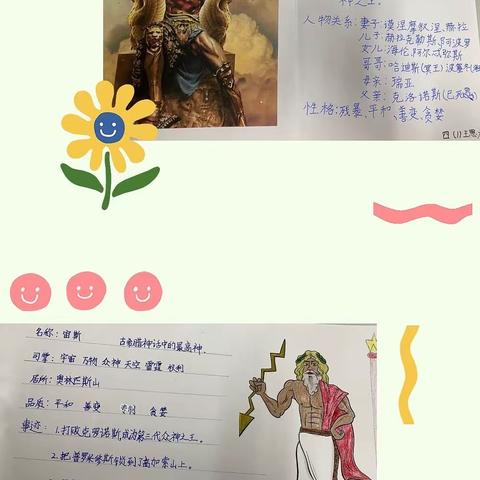 神之王。
人物关系:妻子:谟涅摩叙涅、赫拉
儿子:赫拉克勒斯、阿波罗
女儿:海伦、阿尔忒弥斯
哥哥:哈迪斯(冥王)波塞冬(
母亲:瑞亚
父亲:克洛诺斯(已死
性格:残暴、平和、善变、贪婪
四(1)王思
名称:宙斯 古希腊神话中的最高神.
司掌:宇宙 万物 众神 天空 雷霆 权利
居所:奥林匹斯山
品质:平和 善变 贪婪
事迹:1.打败克罗诺斯,成为第三代众神之王。
2.把普罗米修斯锁到了高加索山上。